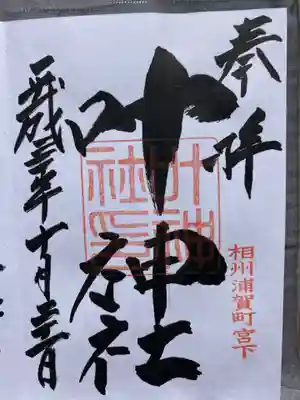 奉拝
相州浦賀町宮下
叶神社
叶神
社印
平成三十年十月